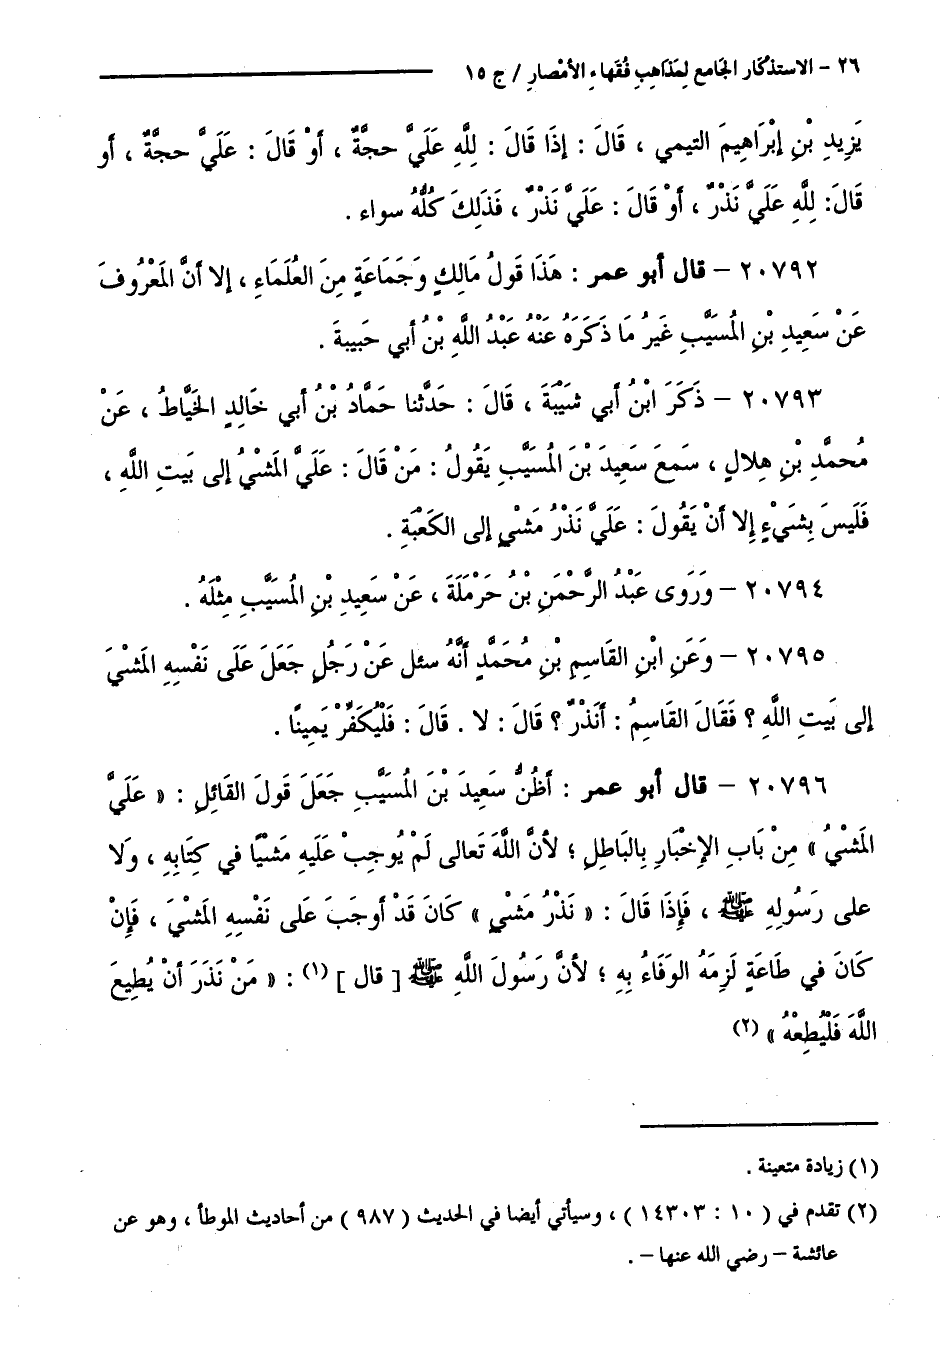 ٢٦ - الاستذكار الجامع لِمَذَاهِبِ فُقَهاءِ الأمْصارِ / ج ١٥
يَزِيدِ بْنِ إِبْرَاهِيمَ التيمي ، قَالَ : إِذَا قَالَ : لِلَّهِ عَلَيَّ حجةٌ ، أَوْ قَالَ : عَلَيَّ حجةٌ ، أو
قَالَ: لِلَّهِ عَلَيَّ نَذْرٌ ، أَوْ قَالَ : عَلَيَّ نَذْرٌ ، فَذَلِكَ كُلُّهُ سواء .
٢٠٧٩٢ - قال أبو عمر : هَذَا قَولُ مَالِكٍ وَجَمَاعَةٍ مِنَ العُلَمَاءِ ، إلا أنَّ المَعْرُوفَ
عَنْ سَعِيدِ بْنِ المُسَيَّبِ غَيرُ مَا ذَكَرَهُ عَنْهُ عَبْدُ اللَّهِ بْنُ أبي حَبِيبةَ .
٢٠٧٩٣ - ذَكَرَ ابْنُ أبي شَيْبَةَ ، قَالَ : حَدَّثنا حَمَّادُ بْنُ أبي خَالِدٍ الخَيَّاطُ ، عَنْ
مُحمَّدِ بْنِ هِلالٍ ، سَمعَ سَعِيدَ بْنَ المُسَيَّبِ يَقُولُ : مَنْ قَالَ : عَلَيَّ المَشْيُ إلى بَيتِ اللَّهِ ،
فَلَيسَ بِشَيْءٍ إلا أنْ يَقُولَ : عَلَيَّ نَذْرُ مَشْيٍ إلى الكَعْبَةِ .
٢٠٧٩٤ - وَرَوَى عَبْدُ الرَّحْمَنِ بْنُ حَرْمَلَةَ ، عَنْ سَعِيدِ بْنِ المُسَيَّبِ مِثْلَهُ .
٢٠٧٩٥ - وَعَنِ ابْنِ القَاسِمِ بْنِ مُحَمَّدٍ أنَّهُ سئل عَنْ رَجُلٍ جَعَلَ عَلَى نَفْسِهِ المَشْيَ
إلى بَيتِ اللَّهِ ؟ فَقَالَ القَاسِمُ : أنَذْرٌ ؟ قَالَ : لا . قَالَ : فَلْيُكَفِّرْ يَمِينًا .
٢٠٧٩٦ - قال أبو عمر : أظُنُّ سَعِيدَ بْنَ المُسَيَّبِ جَعَلَ قَولَ القَائِلِ : « عَلَيَّ
المَشْيُ » مِنْ بَابِ الإخْبَارِ بِالبَاطِلِ ؛ لأنَّ اللَّهَ تَعالى لَمْ يُوجِبْ عَلَيهِ مَشْيًا في كِتَابِهِ ، وَلا
على رَسُولِهِ ﷺ ، فَإِذَا قَالَ : « نَذْرُ مَشْيٍ » كَانَ قَدْ أوجَبَ عَلى نَفْسِهِ المَشْيَ ، فَإِنْ
كَانَ في طَاعَةٍ لَزِمَهُ الوَفَاءُ بِهِ ؛ لأنَّ رَسُولَ اللَّهِ ﷺ [ قال ] (١) : « مَنْ نَذَرَ أنْ يُطِيعَ
اللَّهَ فَلْيُطِعْهُ » (٢)
(١) زيادة متعينة .
(٢) تقدم في ( ١٠ : ١٤٣٠٣ ) ، وسيأتي أيضا في الحديث ( ٩٨٧ ) من أحاديث الموطأ ، وهو عن
عائشة - رضي الله عنها - .